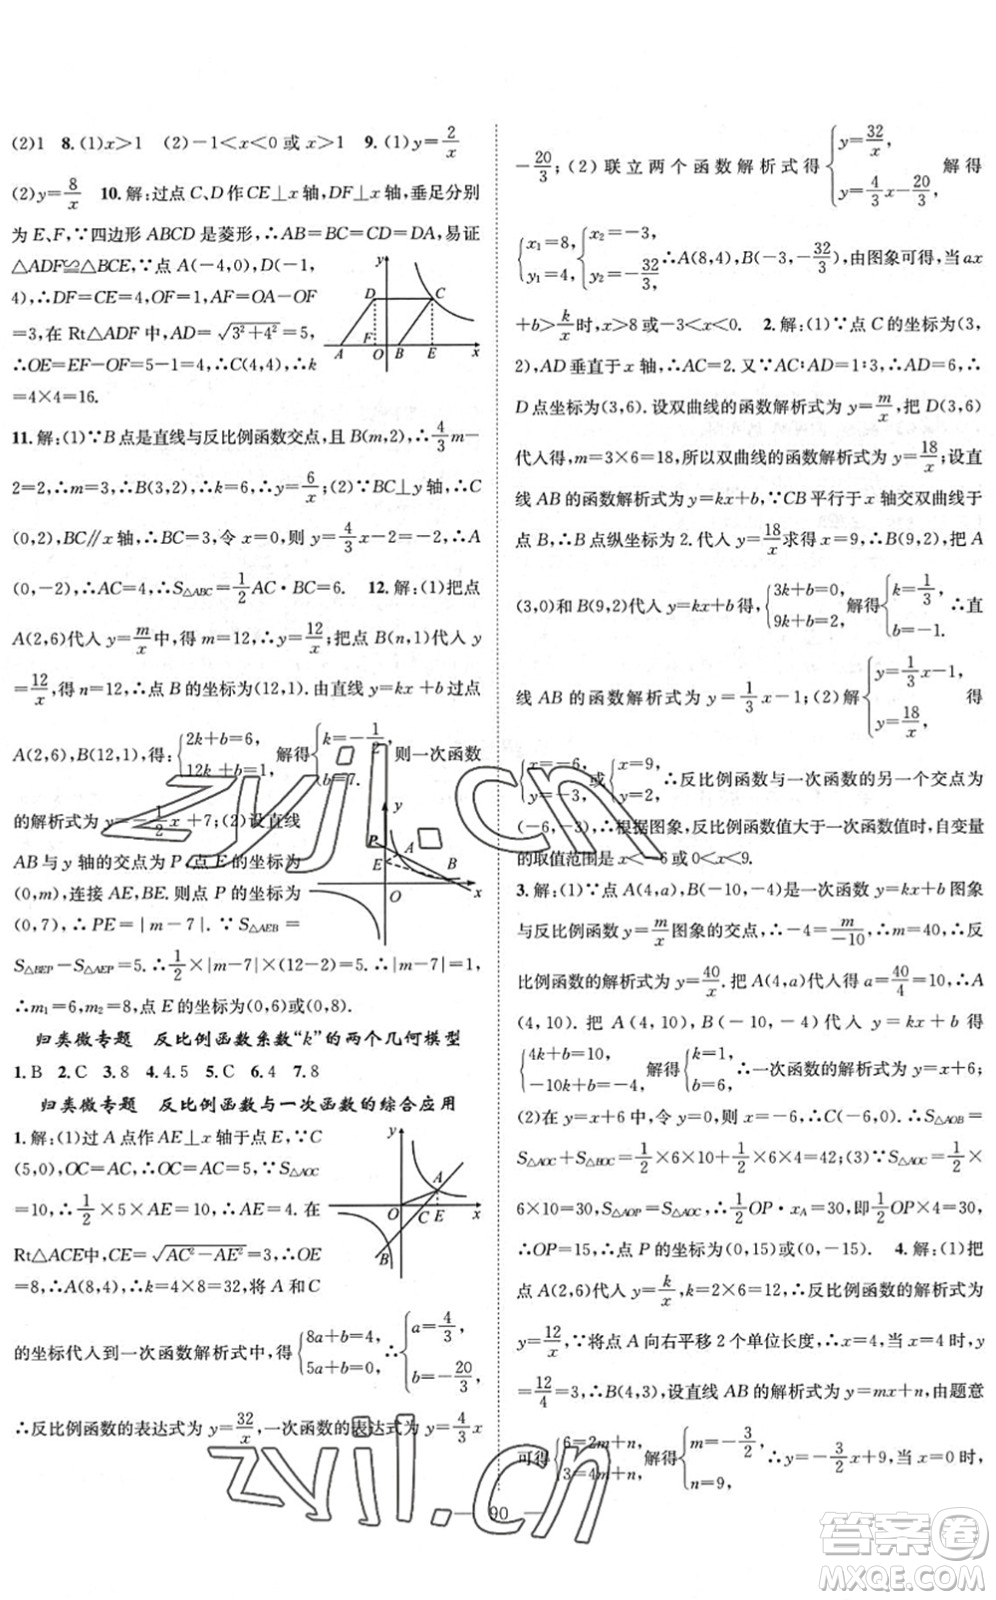 (2)1 8.(1)x>1 (2)-1<x<0或x>1 9.(1)y=2/x
(2)y=8/x 10.解:过点C、D作CE⊥x轴,DF⊥x轴,垂足分别
为E、F,∵四边形ABCD是菱形,∴AB=BC=CD=DA,易证
△ADF≌△BCE,∵点A(-4,0),D(-1,
4),∴DF=CE=4,OF=1,AF=OA-OF
=3,在Rt△ADF中,AD=√(3²+4²)=5,
∴OE=EF-OF=5-1=4,∴C(4,4),∴k
=4×4=16.
y D C F A O B E x
11.解:(1)∵B点是直线与反比例函数交点,且B(m,2),∴4/3m-
2=2,∴m=3,∴B(3,2),∴k=6,∴y=6/x;(2)∵BC⊥y轴,∴C
(0,2),BC∥x轴,∴BC=3,令x=0,则y=4/3x-2=-2,∴A
(0,-2),∴AC=4,∴S△ABC=1/2AC·BC=6. 12.解:(1)把点
A(2,6)代入y=m/x中,得m=12,∴y=12/x;把点B(n,1)代入y
=12/x,得n=12,∴点B的坐标为(12,1).由直线y=kx+b过点
A(2,6),B(12,1),得:{2k+b=6, 12k+b=1, 解得{k=-1/2, b=7. 则一次函数
的解析式为y=-1/2x+7;(2)设直线
AB与y轴的交点为P,点E的坐标为
(0,m),连接AE,BE.则点P的坐标为
(0,7),∴PE=|m-7|.∵S△AEB=
S△BEP-S△AEP=5.∴1/2×|m-7|×(12-2)=5.∴|m-7|=1.
∴m₁=6,m₂=8,点E的坐标为(0,6)或(0,8).
y P E A B O x
归类微专题 反比例函数系数“k”的两个几何模型
1.B 2.C 3.8 4.4.5 5.C 6.4 7.8
归类微专题 反比例函数与一次函数的综合应用
1.解:(1)过A点作AE⊥x轴于点E,∵C
(5,0),OC=AC,∴OC=AC=5,∵S△AOC
=10,∴1/2×5×AE=10,∴AE=4.在
Rt△ACE中,CE=√(AC²-AE²)=3,∴OE
=8,∴A(8,4),∴k=4×8=32,将A和C
y A O C E x B
的坐标代入到一次函数解析式中,得{8a+b=4, 5a+b=0, ∴{a=4/3, b=-20/3,
∴反比例函数的表达式为y=32/x,一次函数的表达式为y=4/3x
-20/3;(2)联立两个函数解析式得{y=32/x, y=4/3x-20/3, 解得
{x₁=8, y₁=4, {x₂=-3, y₂=-32/3, ∴A(8,4),B(-3,-32/3),由图象可得,当ax
+b>k/x时,x>8或-3<x<0. 2.解:(1)∵点C的坐标为(3,
2),AD垂直于x轴,∴AC=2.又∵AC:AD=1:3,∴AD=6,∴
D点坐标为(3,6).设双曲线的函数解析式为y=m/x,把D(3,6)
代入得,m=3×6=18,所以双曲线的函数解析式为y=18/x;设直
线AB的函数解析式为y=kx+b,∵CB平行于x轴交双曲线于
点B,∴B点纵坐标为2.代入y=18/x求得x=9,∴B(9,2).把A
(3,0)和B(9,2)代入y=kx+b得,{3k+b=0, 9k+b=2, 解得{k=1/3, b=-1. ∴直
线AB的函数解析式为y=1/3x-1;(2)解{y=1/3x-1, y=18/x, 得
{x=-6, y=-3, 或{x=9, y=2, ∴反比例函数与一次函数的另一个交点为
(-6,-3),∴根据图象,反比例函数值大于一次函数值时,自变量
的取值范围是x<-6或0<x<9.
3.解:(1)∵点A(4,a),B(-10,-4)是一次函数y=kx+b图象
与反比例函数y=m/x图象的交点,∴-4=m/-10,∴m=40,∴反
比例函数的解析式为y=40/x.把A(4,a)代入得a=40/4=10,∴A
(4,10).把A(4,10),B(-10,-4)代入y=kx+b得
{4k+b=10, -10k+b=-4, 解得{k=1, b=6, ∴一次函数的解析式为y=x+6;
(2)在y=x+6中,令y=0,则x=-6,∴C(-6,0).∴S△AOB=
S△AOC+S△BOC=1/2×6×10+1/2×6×4=42;(3)∵S△AOC=1/2×
6×10=30,S△AOP=S△AOC,∴1/2OP·xA=30,即1/2OP×4=30,
∴OP=15,∴点P的坐标为(0,15)或(0,-15). 4.解:(1)把
点A(2,6)代入y=k/x,k=2×6=12,∴反比例函数的解析式为
y=12/x,∵将点A向右平移2个单位长度,∴x=4,当x=4时,y=
12/4=3,∴B(4,3),设直线AB的解析式为y=mx+n,由题意
可得{6=2m+n, 3=4m+n, 解得{m=-3/2, n=9, ∴y=-3/2x+9,当x=0时,
— 90 —
zyjl.cn
zyjl.cn
答案卷
MXQE.COM